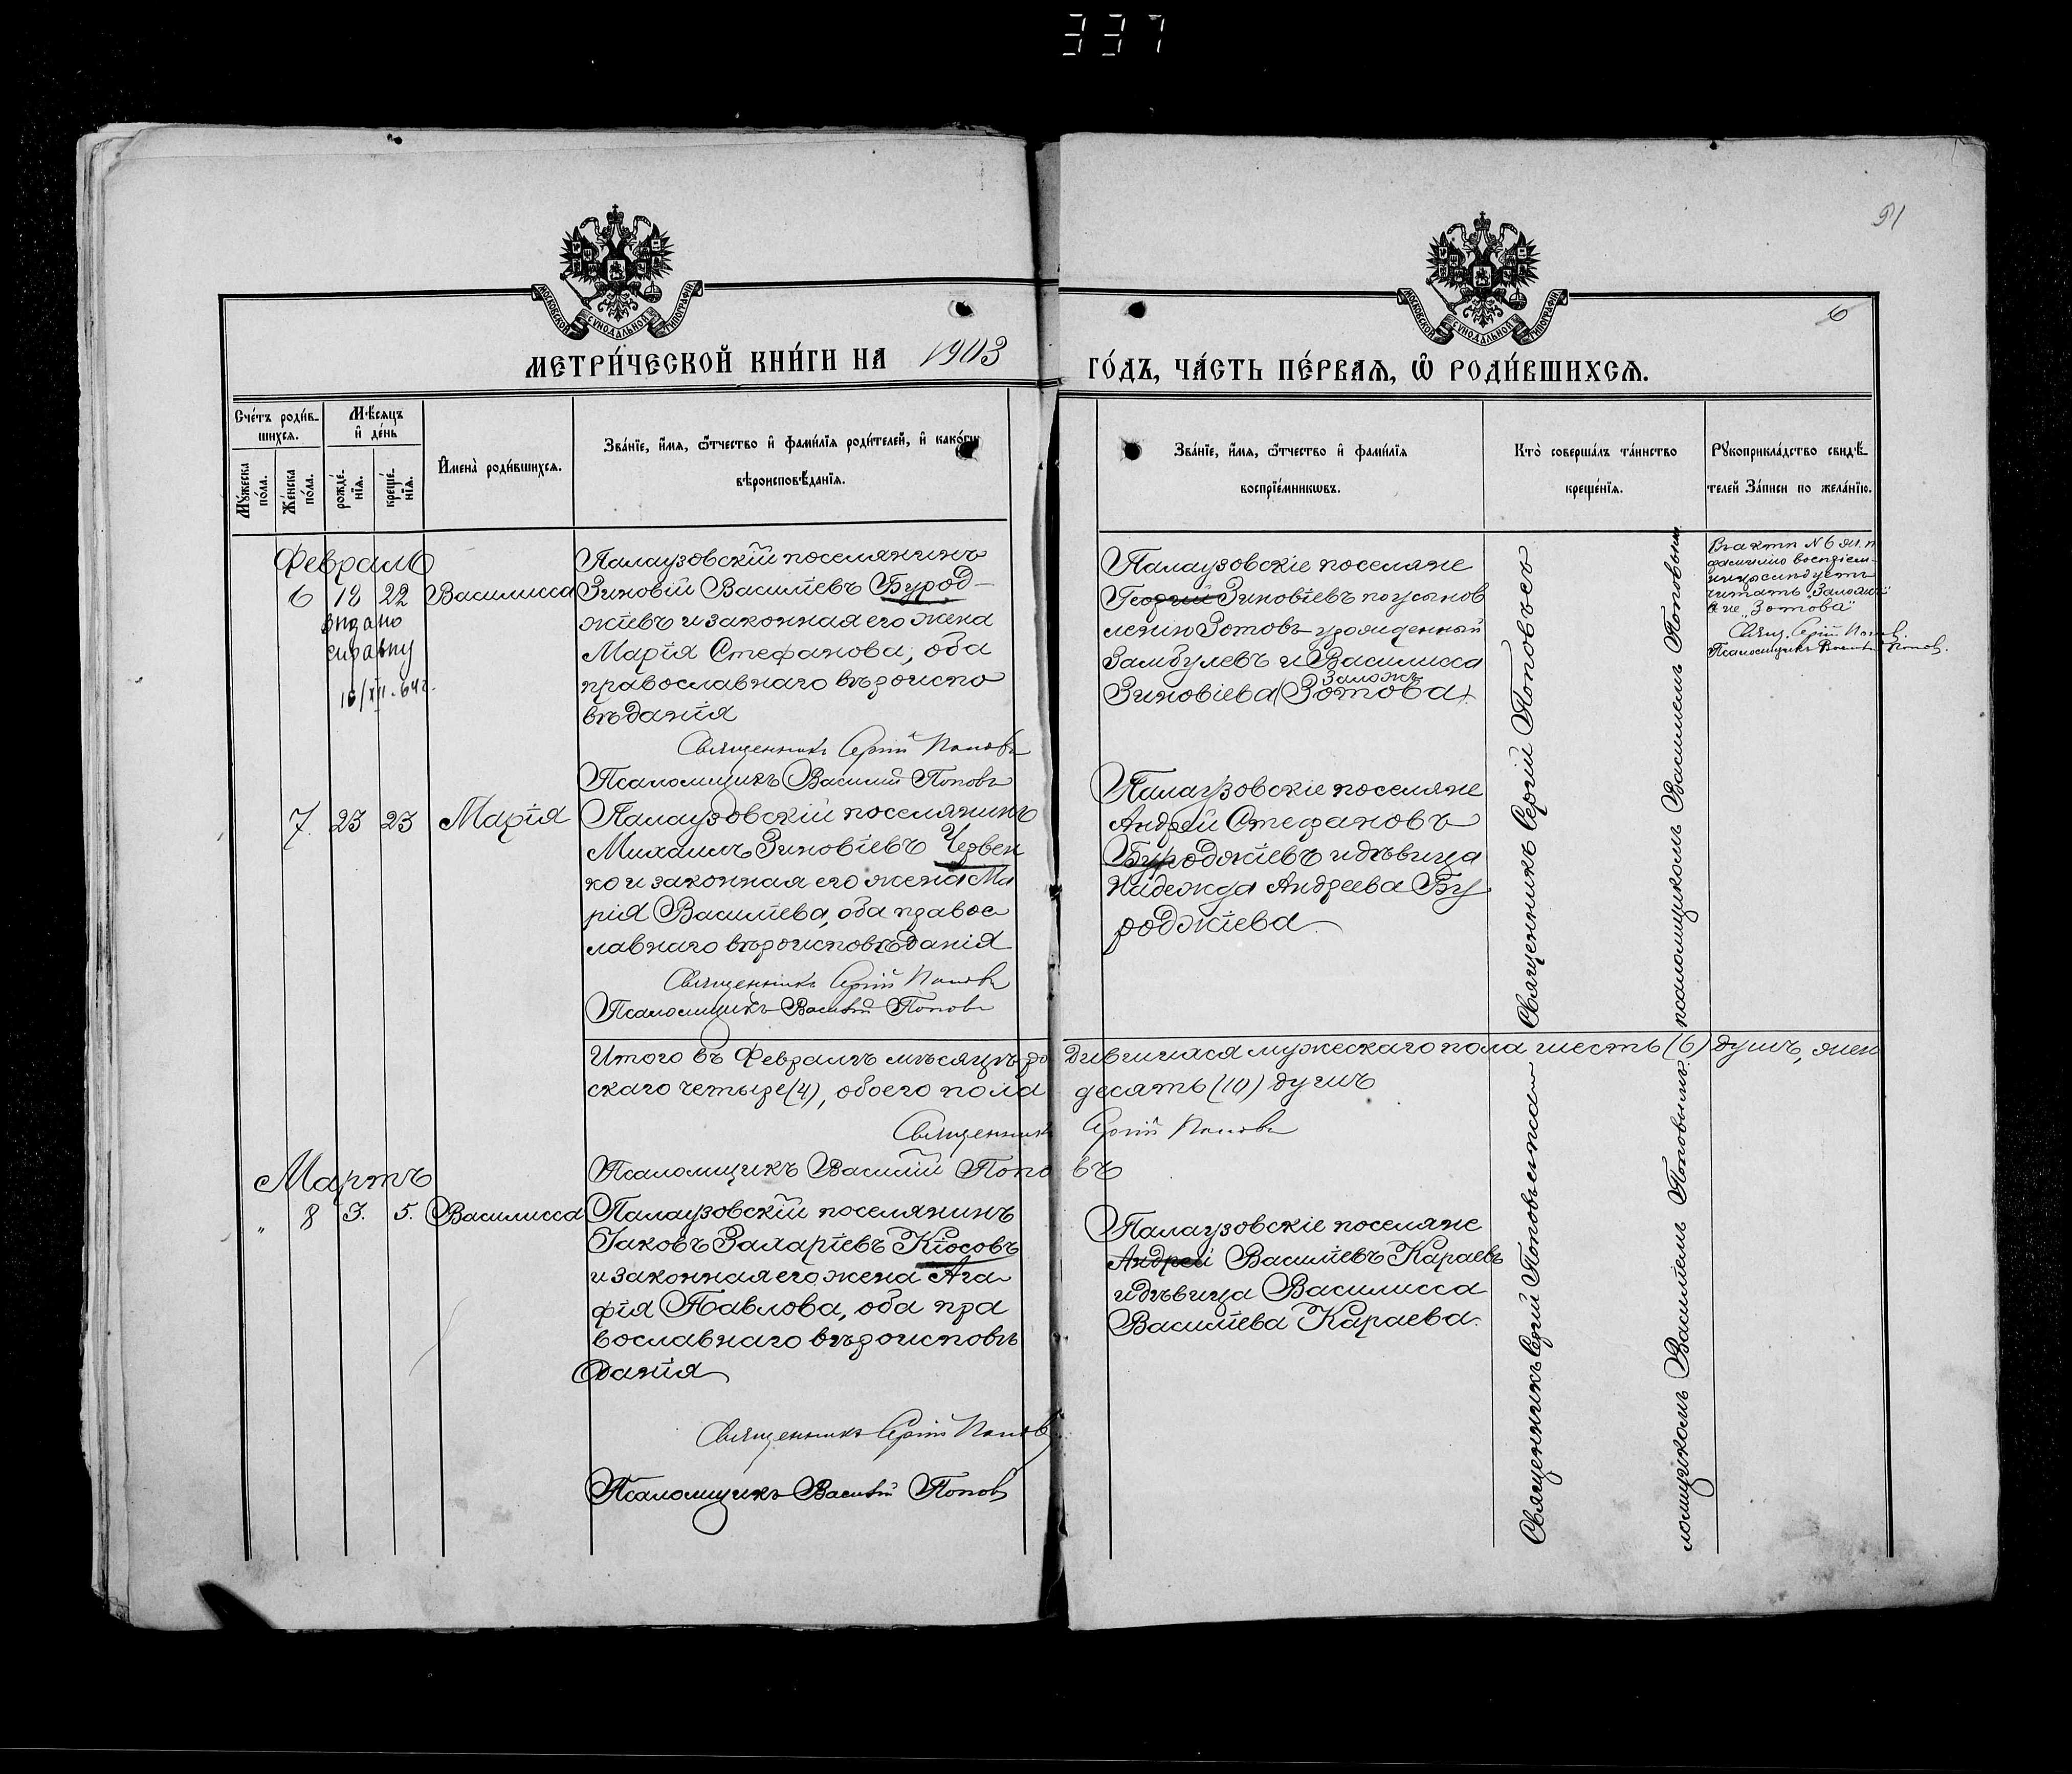 337
91
МОСКОВСКОЙ СѴНОДАЛЬНОЙ ТИПОГРАФІИ
МОСКОВСКОЙ СѴНОДАЛЬНОЙ ТИПОГРАФІИ
6
МЕТРИ́ЧЕСКОЙ КНИ́ГИ НА 1903
ГО́ДЪ, ЧА́СТЬ ПЕ́РВАѦ, Ѡ҆ РОДИ́ВШИХСѦ.
Сче́тъ роди́в-
шихсѧ.
Мѣ́сѧцъ
и҆ де́нь
Мꙋ́жеска
по́ла.
Же́нска
по́ла.
рожде́-
нїѧ.
креще́-
нїѧ.
И҆мена̀ роди́вшихсѧ.
Зва́нїе, и҆́мѧ, ѻ҆́тчество и҆ фами́лїѧ роди́телей, и҆ како́гѡ
вѣроисповѣ́данїѧ.
Зва́нїе, и҆́мѧ, ѻ҆́тчество и҆ фами́лїѧ
воспрїе́мникѡвъ.
Кто̀ соверша́лъ та́инство
креще́нїѧ.
Рꙋкоприкла́дство свидѣ́-
телей За́писи по жела́нїю.
Февраль
6 18 22 Василисса
видано
справку
16/XII-64г.
Палаузовскій поселянинъ
Зиновій Василіевъ Бурод-
жіевъ и законная его жена
Марія Стефанова, оба
православнаго вѣроиспо
вѣданія
Священникъ Сергій Поповъ
Псаломщикъ Василій Поповъ
Палаузовскіе поселяне
Георгій Зиновіевъ по усынов
ленію Зотовъ урожденный
Замбулевъ и Василисса
Заложъ
Зиновіева (Зотова).
Въ актѣ №6 ж. п.
фамилію воспріем-
никовъ слѣдуетъ
читать „Заложъ"
а не „Зотова"
Свящ. Сергій Поповъ.
Псаломщикъ Василій Поповъ.
7. 23 23 Марія
Палаузовскій поселянинъ
Михаилъ Зиновіевъ Червен
ко и законная его жена Ма
рія Василіева, оба правос
лавнаго вѣроисповѣданія
Священникъ Сергій Поповъ
Псаломщикъ Василій Поповъ
Палаузовскіе поселяне
Андрей Стефановъ
Буроджіевъ и дѣвица
Надежда Андреева Бу
роджіева
Священникъ Сергій Поповъ съ
псаломщикомъ Василіемъ Поповымъ
Итого въ Февралѣ мѣсяцѣ ро дившихся мужескаго пола шесть (6) душъ, жен
скаго четыре (4), обоего пола десять (10) душъ
Священникъ Сергій Поповъ
Псаломщикъ Василій Поповъ
Мартъ
" 8 3. 5. Василисса
Палаузовскій поселянинъ
Іаковъ Захаріевъ Кіосовъ
и законная его жена Ага
фія Павлова, оба пра
вославнаго вѣроисповѣ
данія
Священникъ Сергій Поповъ
Псаломщикъ Василій Поповъ
Палаузовскіе поселяне
Андрей Василіевъ Караевъ
и дѣвица Василисса
Василіева Караева.
Священникъ Сергій Поповъ съ пса
ломщикомъ Василіемъ Поповымъ.